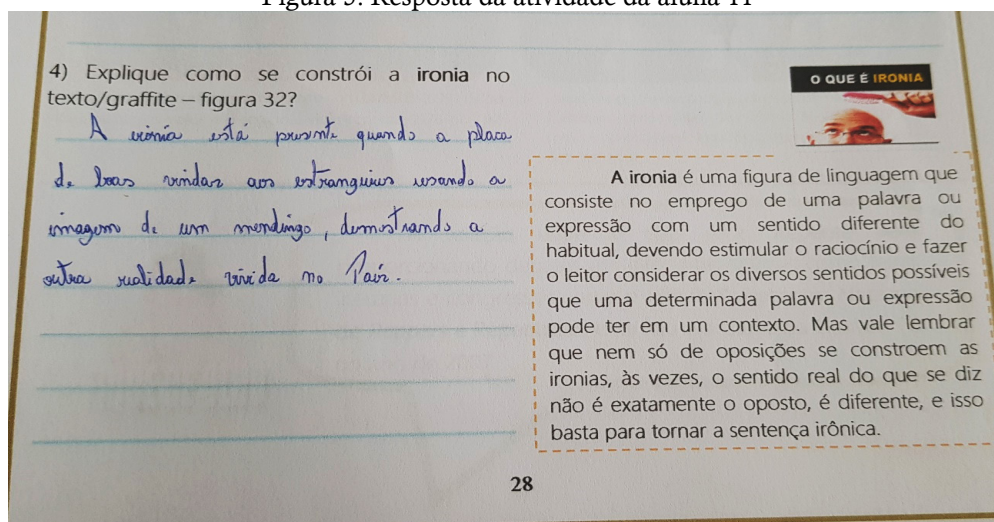 Figura 5: Resposta da atividade da aluna 11
4) Explique como se constrói a ironia no
texto/graffite – figura 32?
A ironia está presente quando a placa
de boas vindas aos estranguiros usando a
imagem de um mendingo, demostrando a
outra realidade vivida no País.
O QUE É IRONIA
A ironia é uma figura de linguagem que
consiste no emprego de uma palavra ou
expressão com um sentido diferente do
habitual, devendo estimular o raciocínio e fazer
o leitor considerar os diversos sentidos possíveis
que uma determinada palavra ou expressão
pode ter em um contexto. Mas vale lembrar
que nem só de oposições se constroem as
ironias, às vezes, o sentido real do que se diz
não é exatamente o oposto, é diferente, e isso
basta para tornar a sentença irônica.
28